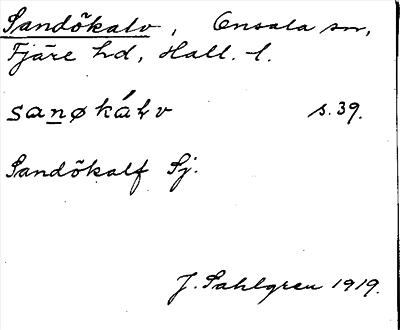 Sandökalv, Onsala sn,
Fjäre hd, Hall. l.
sanøkálv s. 39.
Sandökalf Sj.
J. Sahlgren 1919.